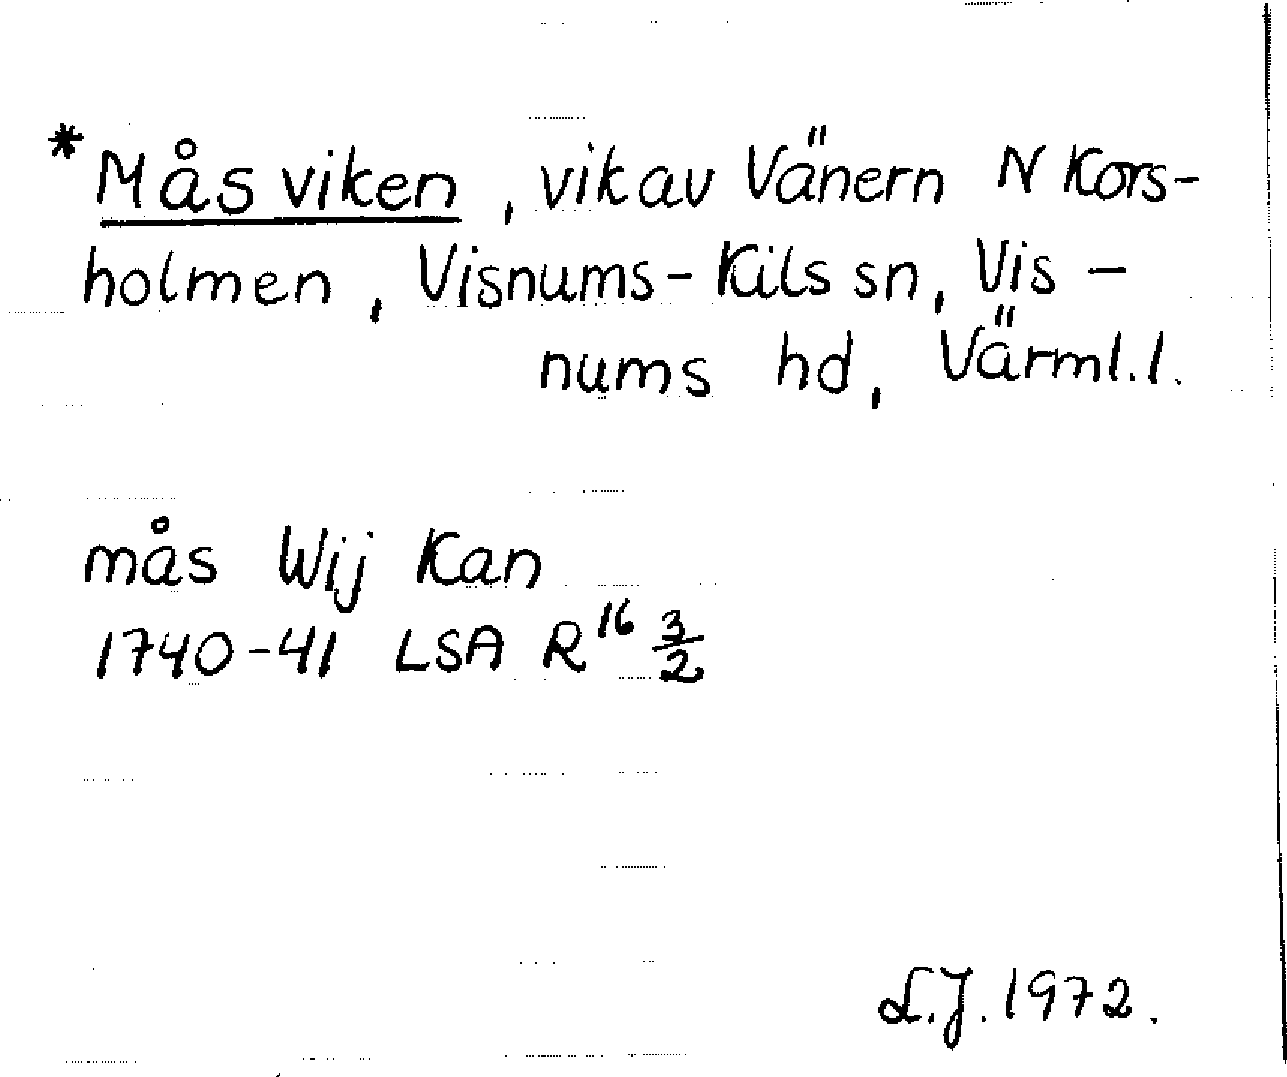 * Måsviken, vik av Vänern N Kors-
holmen, Visnums-Kils sn, Vis-
nums hd, Värml.l.
mås Wij Kan
1740-41 LSA R 16 3/2
L.J. 1972.